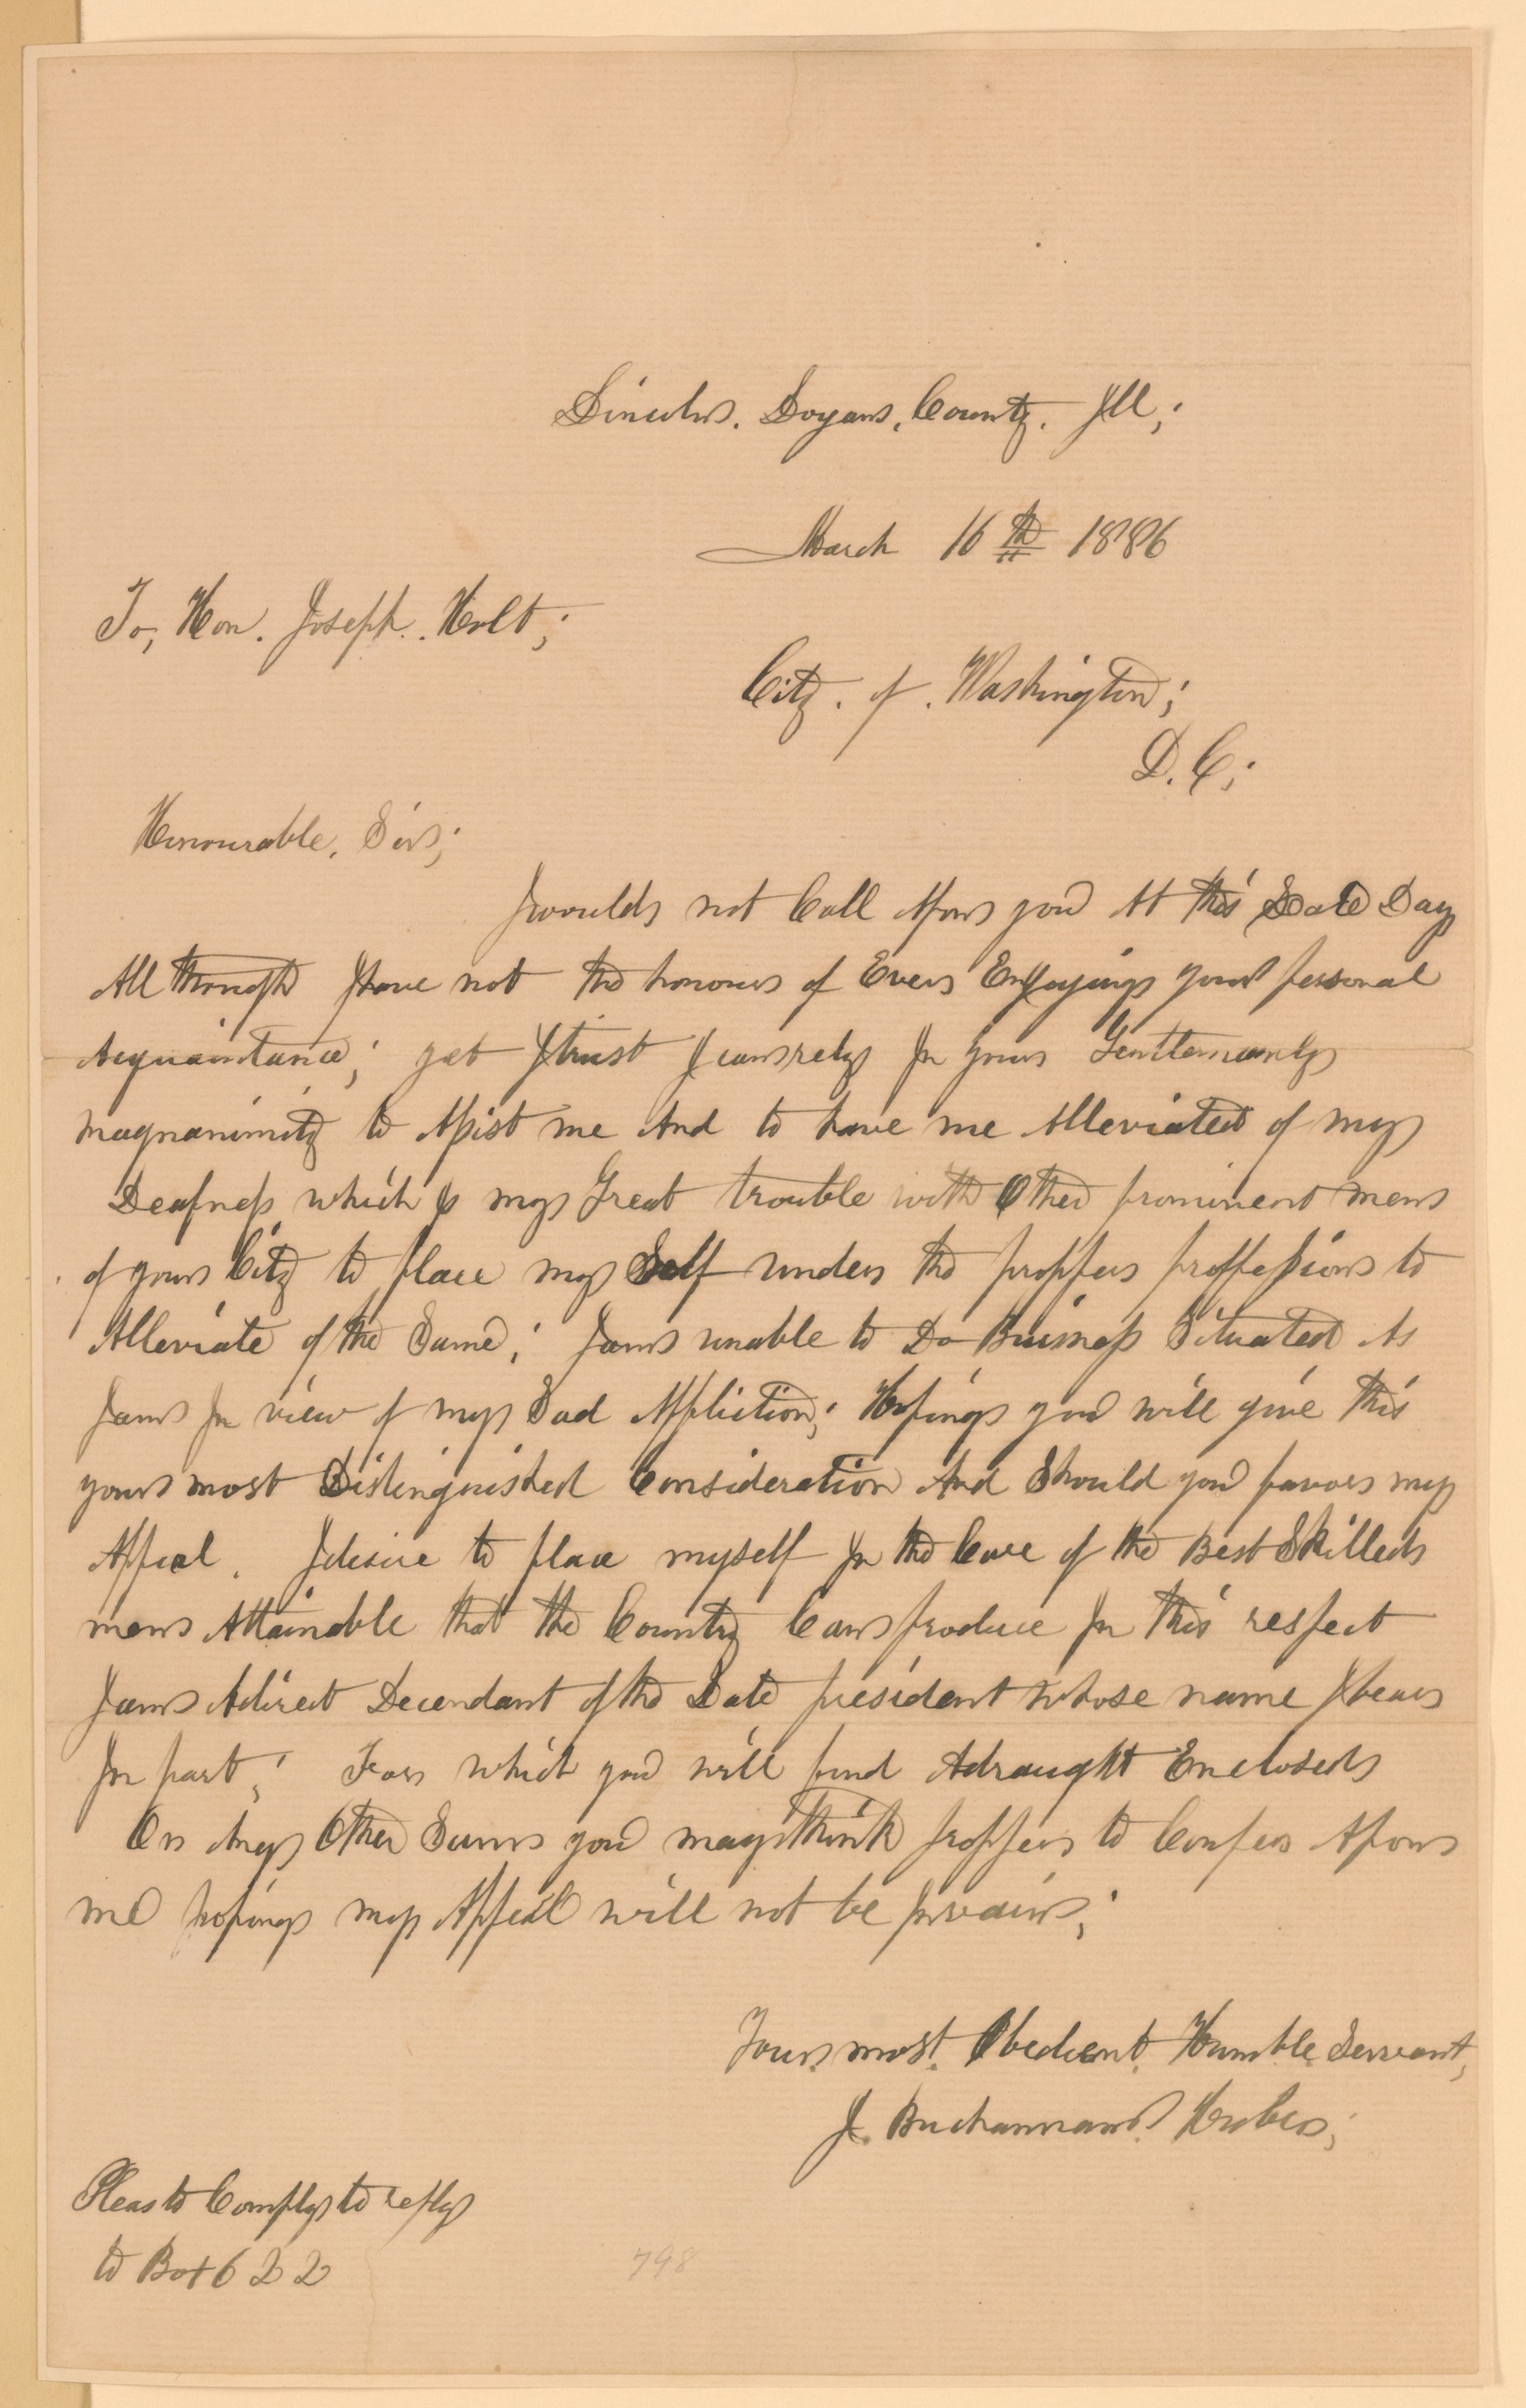 Lincoln. Logan. County. Ill;
March 16th 1886
To, Hon. Joseph. Holt;
City. of. Washington;
D. C;
Honourable. Sir;
I would not Call Upon you At this Late Day
All though I have not the honour of Ever Enjoying your personal
Acquaintance; yet I trust I can rely In your Gentlemanly
magnanimity to Assist me And to have me Alleviated of my
Deafness which Is my Great trouble with Other prominent men
of your City to place my Self under the propper proffession to
Alleviate of the Same; I am unable to Do Buisness Situated As
I am In view of my Sad Affliction; Hoping you will give this
your most Distinguished Consideration And Should you favor my
Appeal. I desire to place myself In the Care of the Best Skilled
men Attainable that the Country Can produce In this respect
I am A direct Decendant of the Late president whose name I bear
In part; For which you will find A draught Enclosed
Or Any Other Sum you may think propper to Confer Upon
me hoping my Appeal will not be In vain;
Your. most. Obedient. Humble. Servant,
J. Buchannan.
Pleas to Comply to reply
to Box 622
798